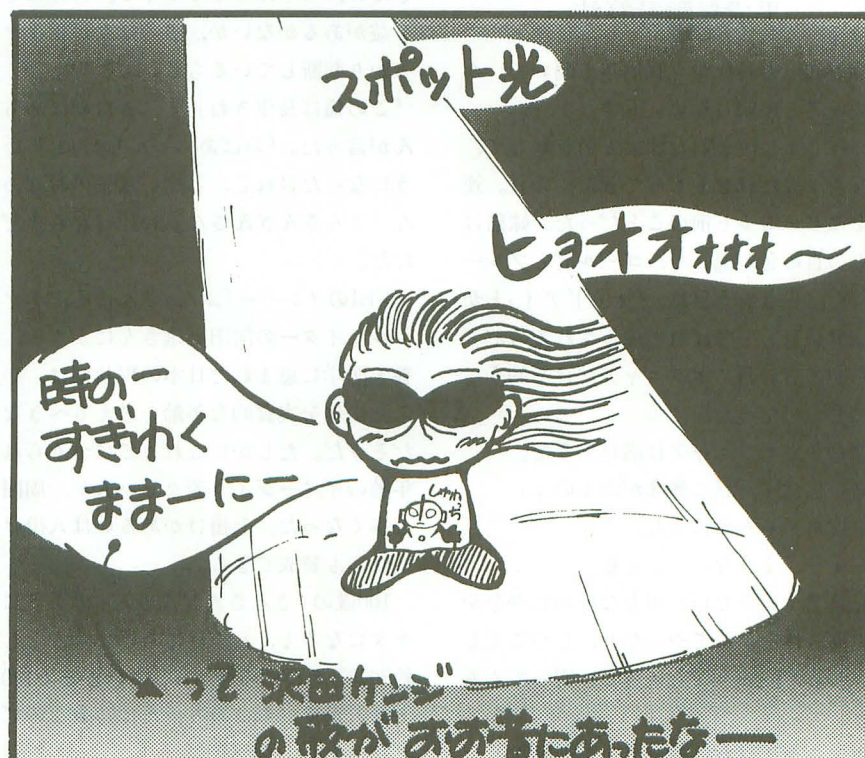 スポット光
ヒョオオォォォォ〜
時の
すぎゆく
ままーにー
しゅわっち
って 沢田ケンジ
の歌が おお昔にあったなー